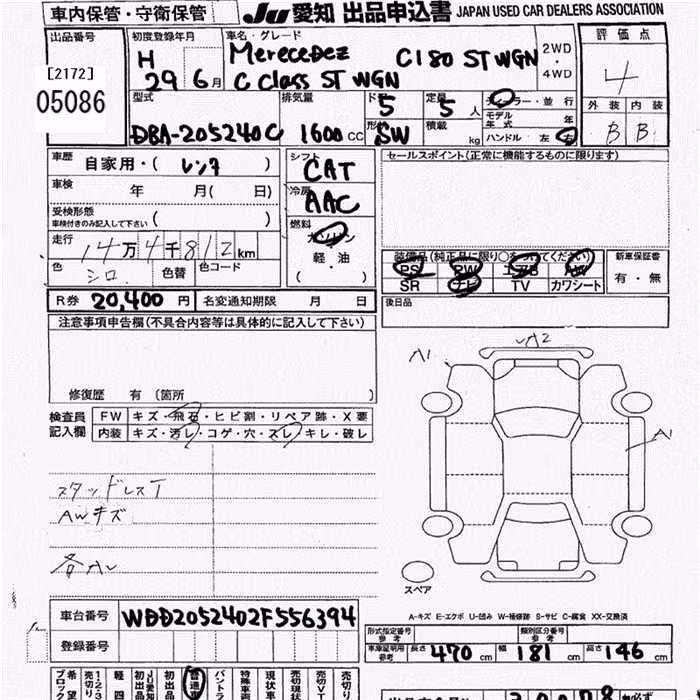 車内保管・守衛保管 Ju 愛知 出品申込書 JAPAN USED CAR DEALERS ASSOCIATION
出品番号 初度登録年月 車名・グレード 評価点
[2172]
05086
H 29 6月
Merecedez C180 ST WGN
C Class ST WGN
2WD・4WD
4
型式 排気量 ドア 定員 ディーラー・並行
DBA-205240C 1600cc 5 5人
モデル年式 年
形状 SW 積載 kg ハンドル 左 右
外装 内装
B B
車歴 自家用・(レンタ)
シフト CAT
セールスポイント(正常に機能するものに限ります)
車検 年 月(日)
冷房 AAC
受検形態
車検付きのみ記入して下さい ( )
燃料 ガソリン・軽・油 ( )
走行 14万4千812km
色 シロ 色替 色コード
装備品(純正品に限り○をつけてください) 新車保証書
PS PW エアB AW
SR ナビ TV カワシート
有・無
R券 20,400円 名変通知期限 月 日
後日品
注意事項申告欄(不具合内容等は具体的に記入して下さい)
修復歴 有〔箇所 〕
A1 A2
A1
検査員記入欄
FW キズ・飛石・ヒビ割・リペア跡・X要
内装 キズ・汚レ・コゲ・穴・スレ・キレ・破レ
スタッドレスT
AWキズ
スペア
A-キズ E-エクボ U-凹み W-補修跡 S-サビ C-腐食 XX-交換済
車台番号 WDD2052402F556394
登録番号
形式指定番号 参考 類別区分番号 参考
車庫証明用参考 長さ 470cm 幅 181cm 高さ 146cm